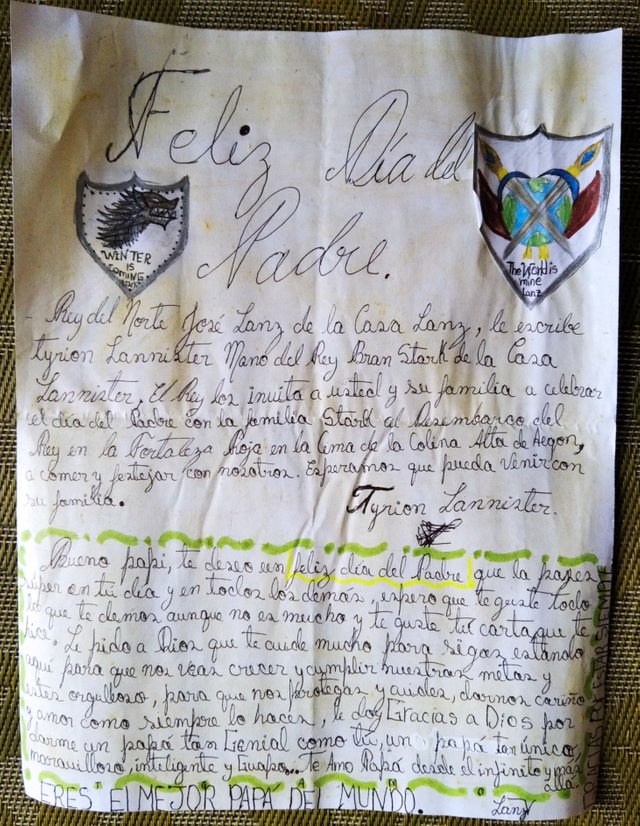 Feliz Día del
Padre.
WINTER
IS
COMING
The World is
mine
Lanz
- Rey del Norte José Lanz de la Casa Lanz, le escribe
Tyrion Lannister Mano del Rey Bran Stark de la Casa
Lannister, El Rey los invita a usted y su familia a celebrar
el día del Padre con la familia Stark al Desembarco del
Rey en la Fortaleza Roja en la Cima de la Colina Alta de Aegon,
a comer y festejar con nosotros. Esperamos que pueda venir con
su familia.
Tyrion Lannister.
Bueno papi, te deseo en feliz día del Padre que la pases
súper en tú dia y en todos los demás, espero que te guste todo
lo que te demos aunque no es mucho y te guste tú carta que te
hice. Le pido a Dios que te cuide mucho para sigas estando
aquí para que nos veas crecer y cumplir nuestras metas y
estes orgulloso, para que nos protegas y cuides, darnos cariño
y amor como siempre lo haces, le doy Gracias a Dios por
darme un papá tan Genial como tú, un papá tan único,
maravilloso, inteligente y Guapo... te Amo Papá desde el infinito y más
alla.
ERES El MEJOR PAPÁ DEL MUNDO.
Lanz
GRACIAS POR ESTAR SIEMPRE